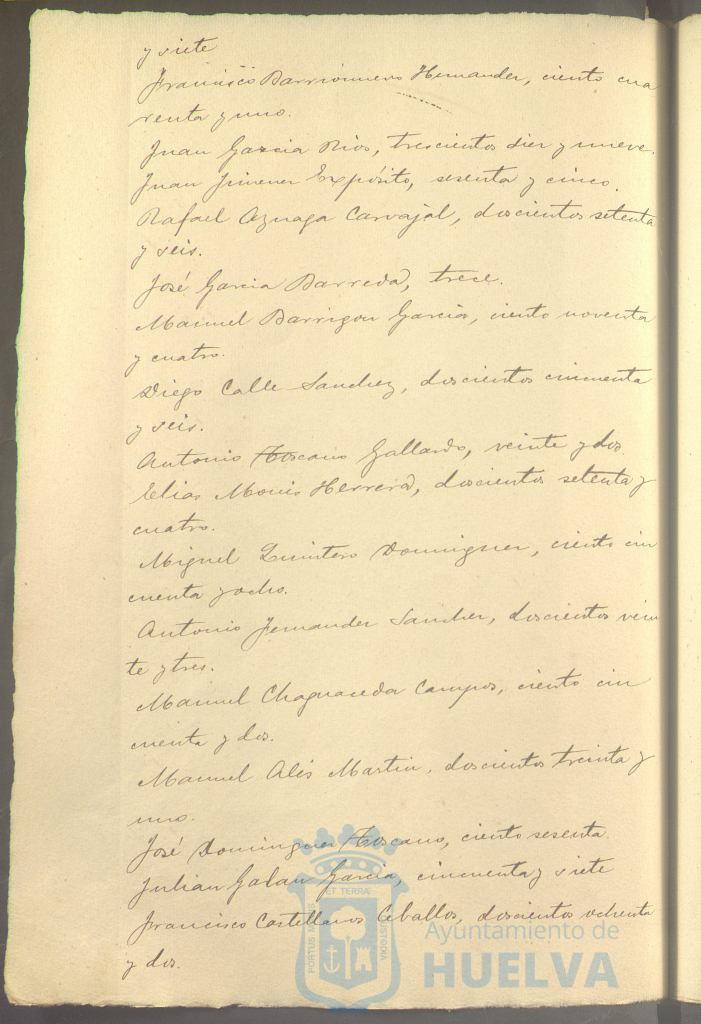 y siete
Francisco Barrionuevo Hernandez, ciento cua
renta y uno.
Juan Garcia Rios, trescientos diez y nueve.
Juan Jimenez Expósito, sesenta y cinco.
Rafael Aznaga Carvajal, doscientos setenta
y seis.
José Garcia Barreda, trece.
Manuel Barrigon Garcia, ciento noventa
y cuatro.
Diego Calle Sanchez, doscientos cincuenta
y seis.
Antonio Toscano Gallardo, veinte y dos.
Elias Monis Herrera, doscientos setenta y
cuatro.
Miguel Quintero Dominguez, ciento cin
cuenta y ocho.
Antonio Fernandez Sanchez, doscientos vein
te y tres.
Manuel Chaguaceda Campos, ciento cin
cuenta y dos.
Manuel Alés Martin, doscientos treinta y
uno.
José Dominguez Toscano, ciento sesenta.
Julian Galan Garcia, cincuenta y siete
Francisco Castellanos Ceballos, doscientos ochenta
y dos.
PORTUS MARIS ET TERRÆ CUSTODIA
Ayuntamiento de
HUELVA